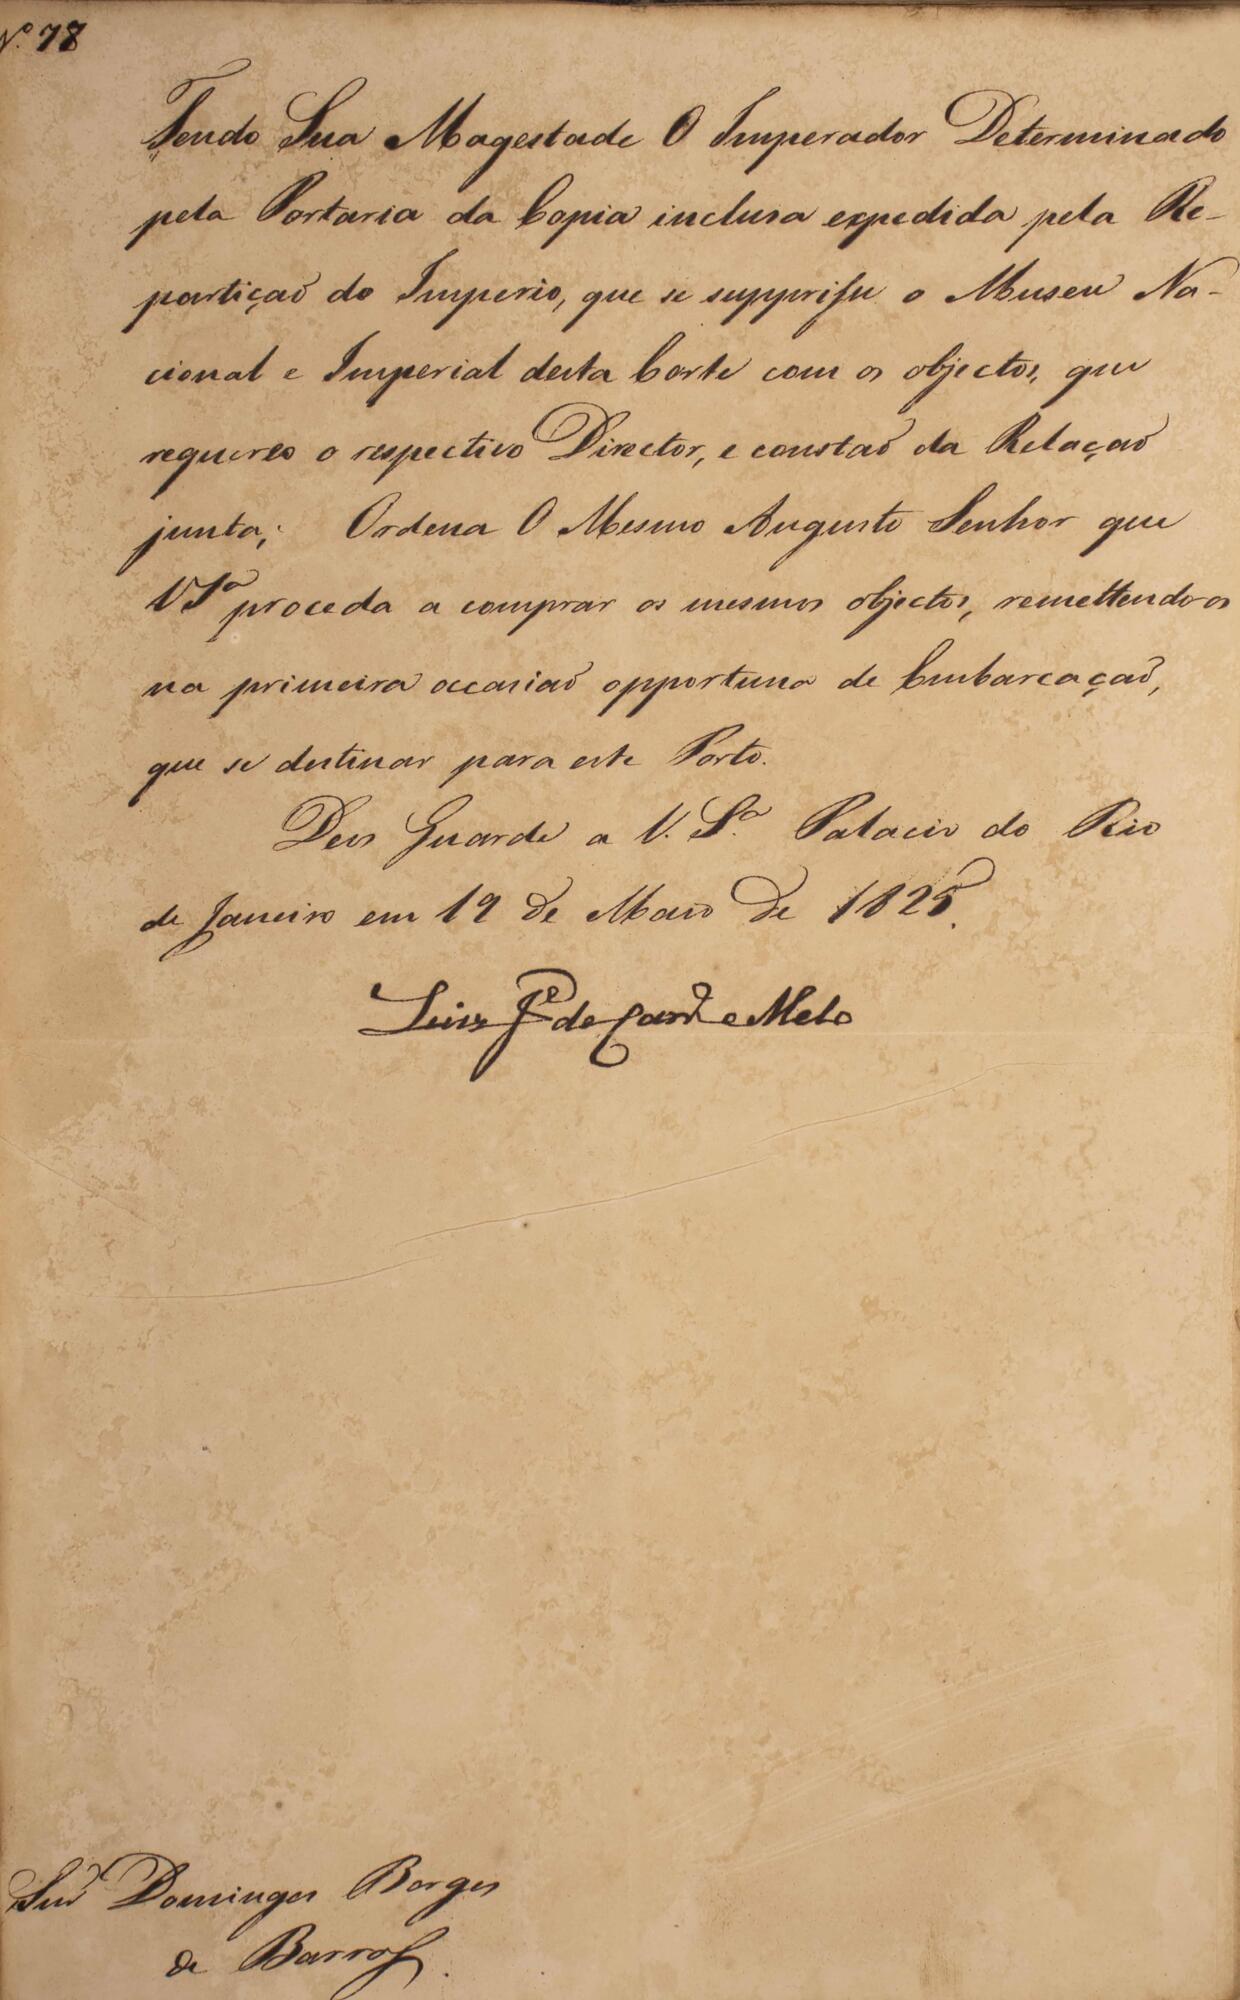 Nº 78
Tendo Sua Magestade O Imperador Determinado
pela Portaria da Copia inclusa expedida pela Re-
partiçaõ do Imperio, que se supprisse o Museu Na-
cional e Imperial desta Corte com os objectos, que
requereo o respectivo Director, e constaõ da Relaçaõ
junta; Ordena O Mesmo Augusto Senhor que
VSª proceda a comprar os mesmos objectos, remettendo-os
na primeira occasiaõ opportuna de Embarcaçaõ,
que se destinar para este Porto.
Deos Guarde a V. Sª. Palacio do Rio
de Janeiro em 19 de Maio de 1825.
Luiz Jᵉ de Carvº e Melo
Snr Domingos Borges
de Barros.